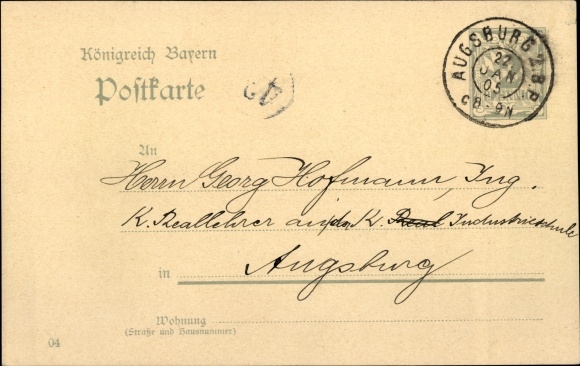 Königreich Bayern
Postkarte
AUGSBURG 2 B.P.
22
JAN
05
8-9N
An
Herrn Georg Hofmann, Ing.
K. Reallehrer an der K. Real Industrieschule
in Augsburg
Wohnung
(Straße und Hausnummer)
04